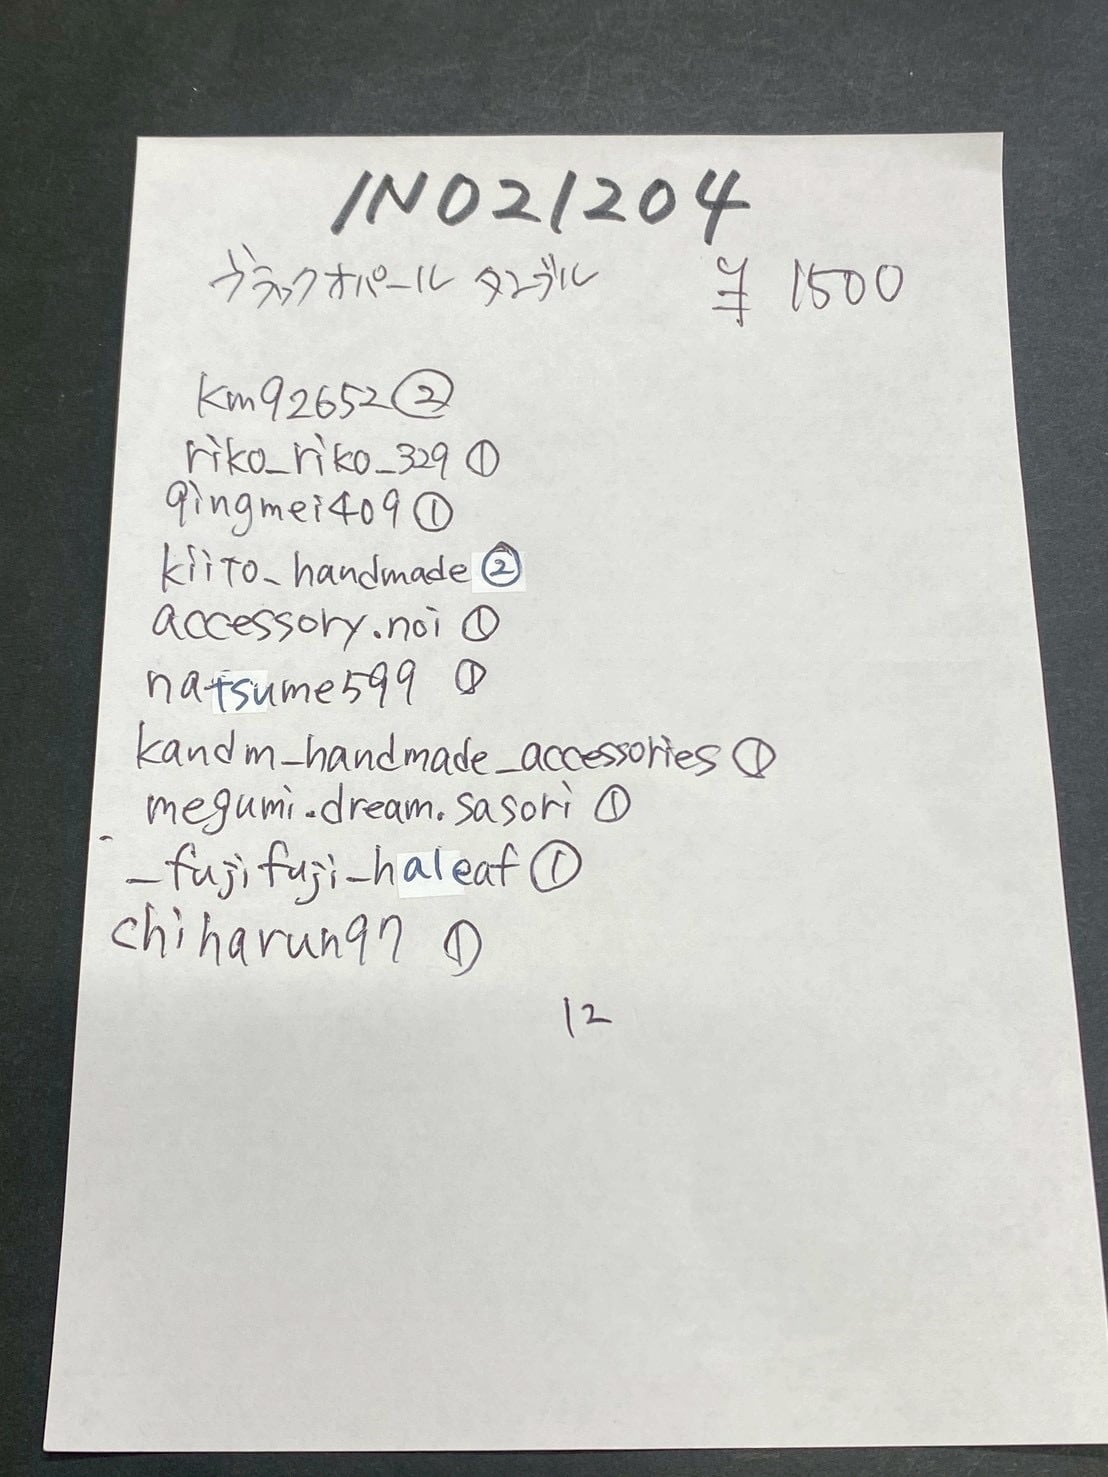 INO21204
ブラックオパール タンブル ¥ 1500
km92652②
riko_riko_329 ①
qingmei409①
kiito_handmade②
accessory.noi ①
natsume599 ①
kandm_handmade_accessories ①
megumi.dream.sasori ①
_fujifuji_haleaf①
chiharun97 ①
12